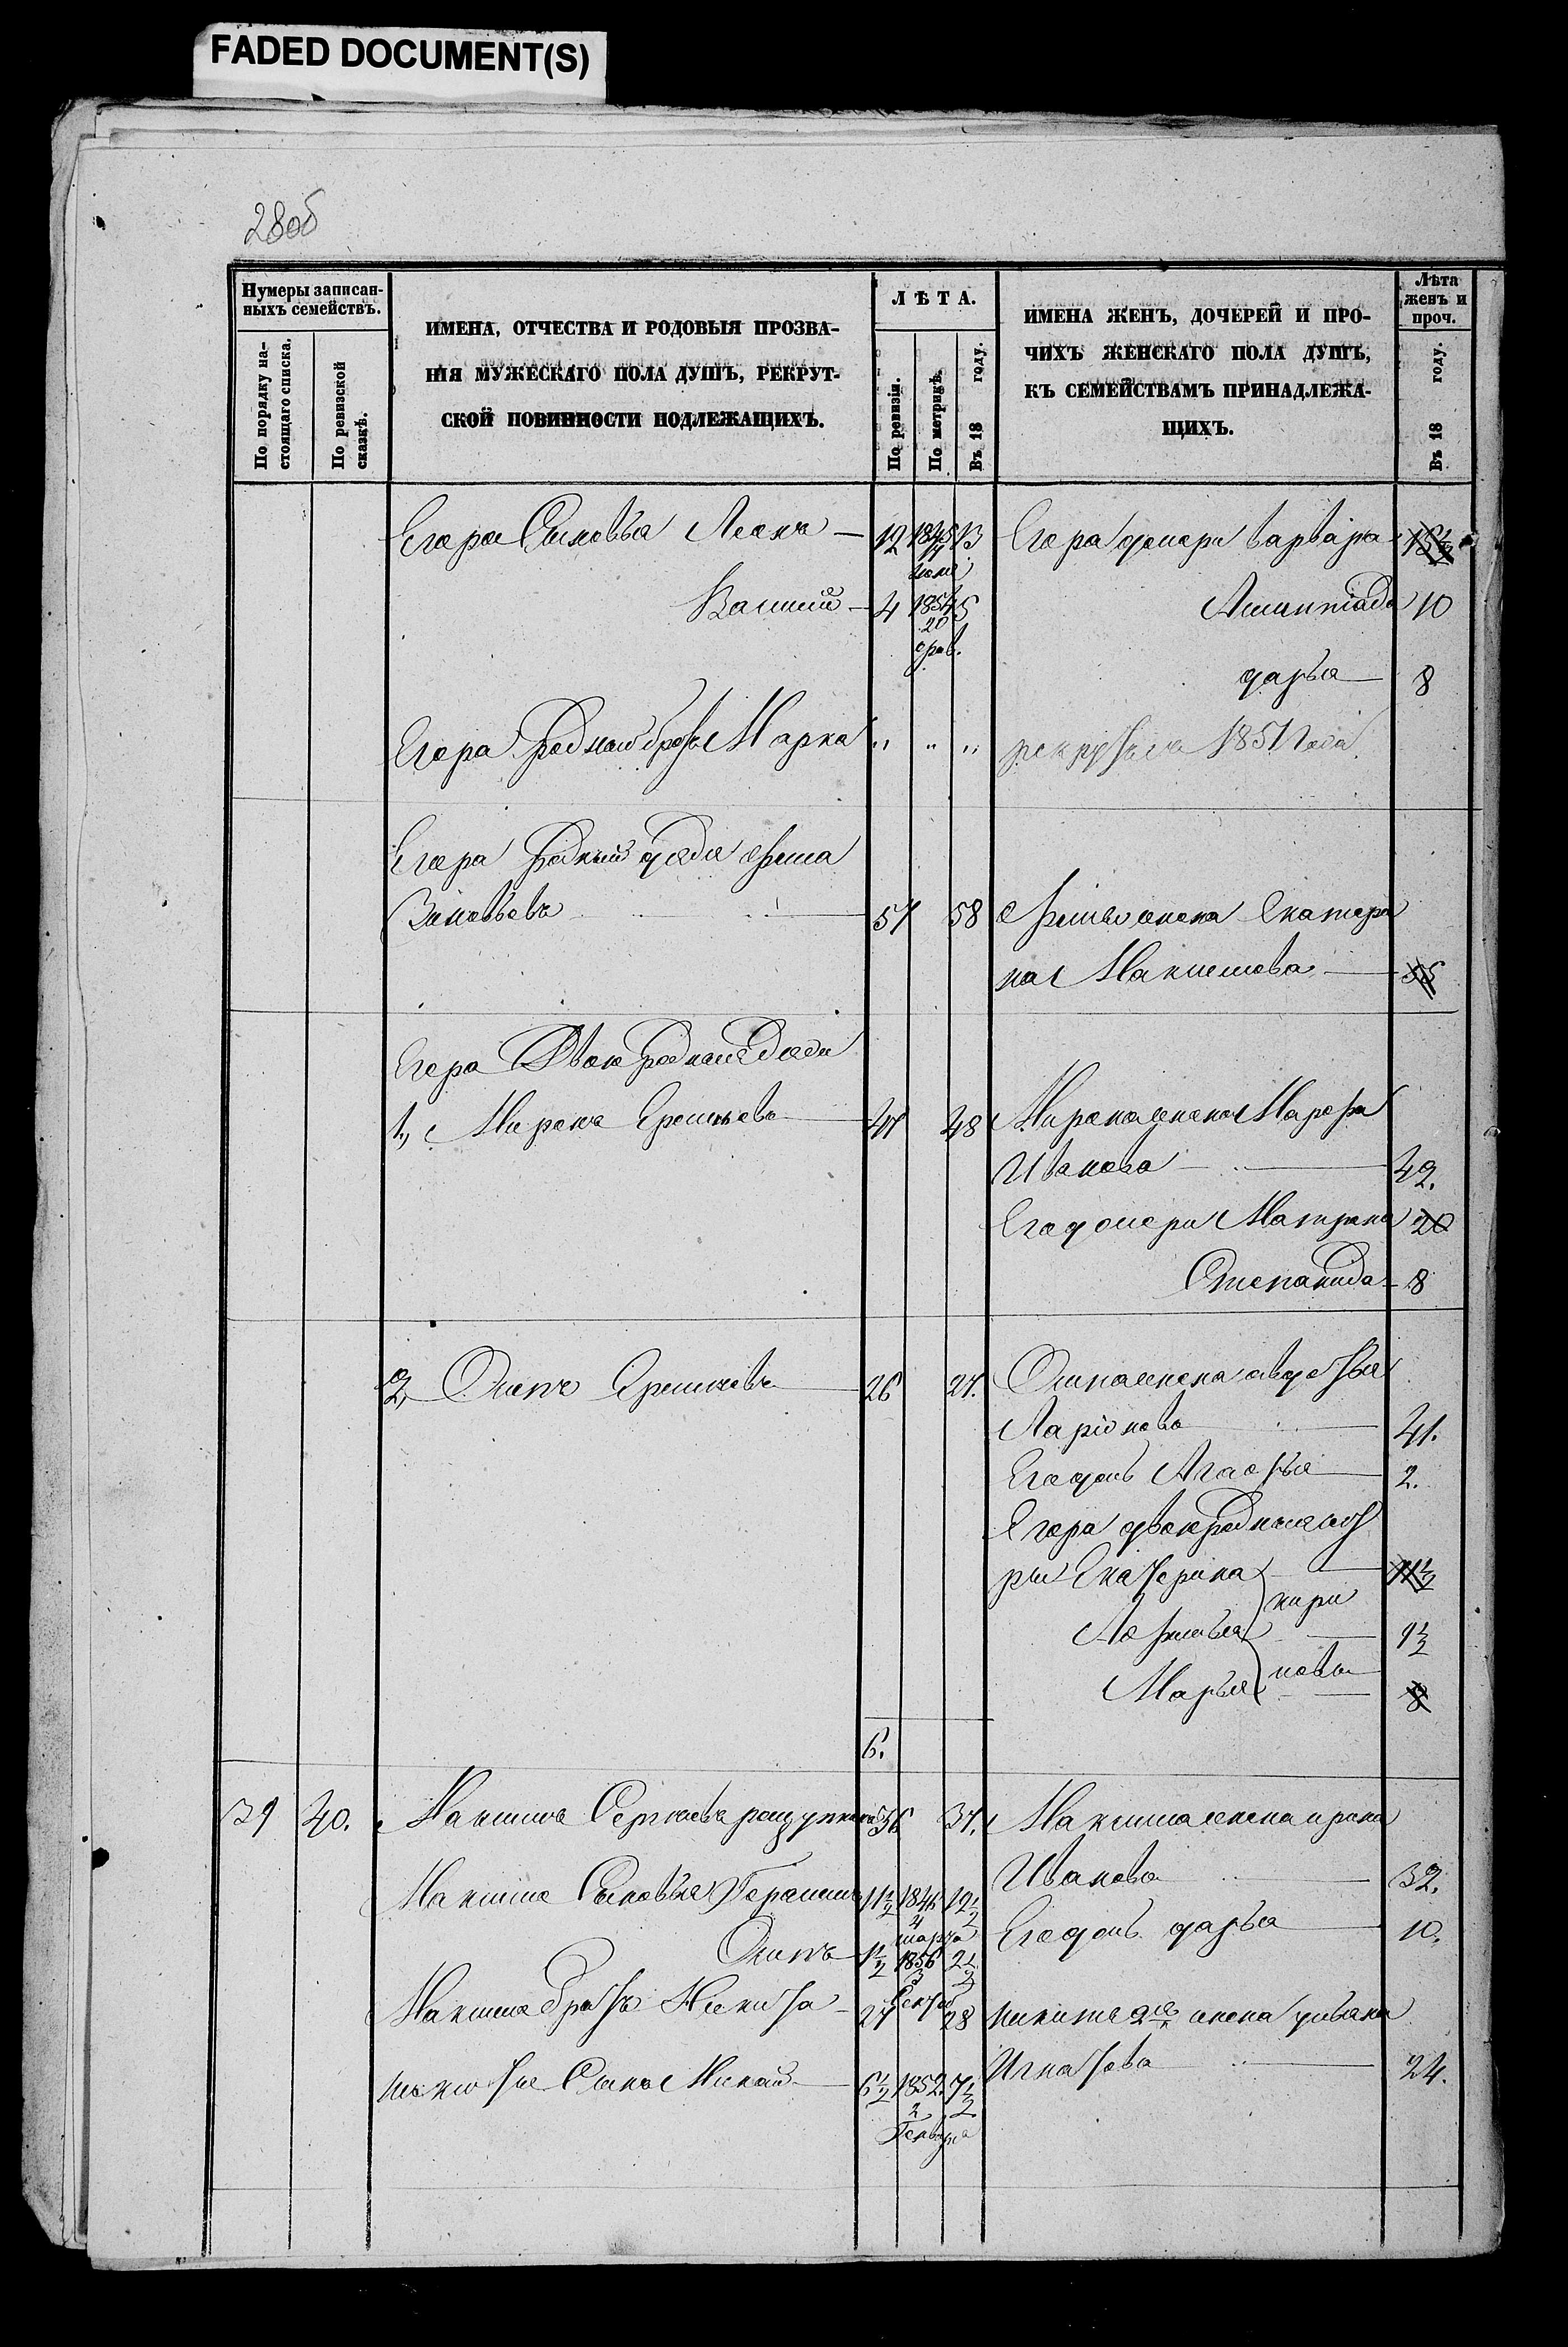 FADED DOCUMENT(S)
28об
Нумеры записан-
ныхъ семействъ.
По порядку на-
стоящаго списка.
По ревизской
сказкѣ.
ИМЕНА, ОТЧЕСТВА И РОДОВЫЯ ПРОЗВА-
НІЯ МУЖЕСКАГО ПОЛА ДУШЪ, РЕКРУТ-
СКОЙ ПОВИННОСТИ ПОДЛЕЖАЩИХЪ.
ЛѢТА.
По ревизіи.
По метрикѣ.
Въ 18 году.
ИМЕНА ЖЕНЪ, ДОЧЕРЕЙ И ПРО-
ЧИХЪ ЖЕНСКАГО ПОЛА ДУШЪ,
КЪ СЕМЕЙСТВАМЪ ПРИНАДЛЕЖА-
ЩИХЪ.
Лѣта
женъ и
проч.
Въ 18 году.
Егора Сыновья 12 1845 13 Егора дочери варвара
4 1854 5 10
20
дарья 8
Егора родной братъ Марка " " " рекрутъ 1851 года
Егора родный дядя
Зиновьевъ 57 58 жена Екатери
на Максимова 55
Егора Двоюродныя дяди
1, Миронъ 47 48 Мирона жена Марфа
Иванова 42.
Его дочери Матрена 20
Степанида 8
2, Осипъ 26 27. Осипа жена авдотья
Ларіонова 41.
Его дочь Агафья 2.
Егора двоюродныя сест
ры Екатерина 11½
кири
Афимья 9½
новы
Марья 8
6.
39 40. Максимъ Сергѣевъ 36 37. Максима жена ирина
Иванова 32.
Максима Сыновья Герасимъ 11½ 1846 12½
4
марта
Его дочь дарья 10.
Осипъ 1½ 1856 2½
3
Максима братъ Никита 27 28 никиты 2я жена ульяна
Игнатова 24.
никиты Сынъ 6½ 1852. 7½
2
Генваря